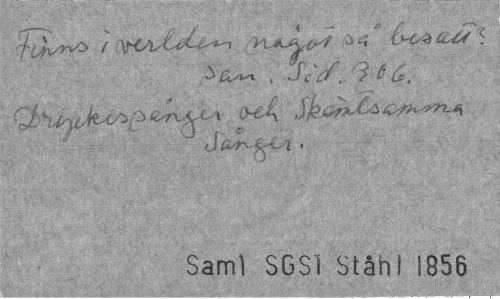 Finns i verlden något så besatt?
san. Sid. 306.
Dryckessånger och Skämtsamma
Sånger.
Saml SGS1 Ståhl 1856